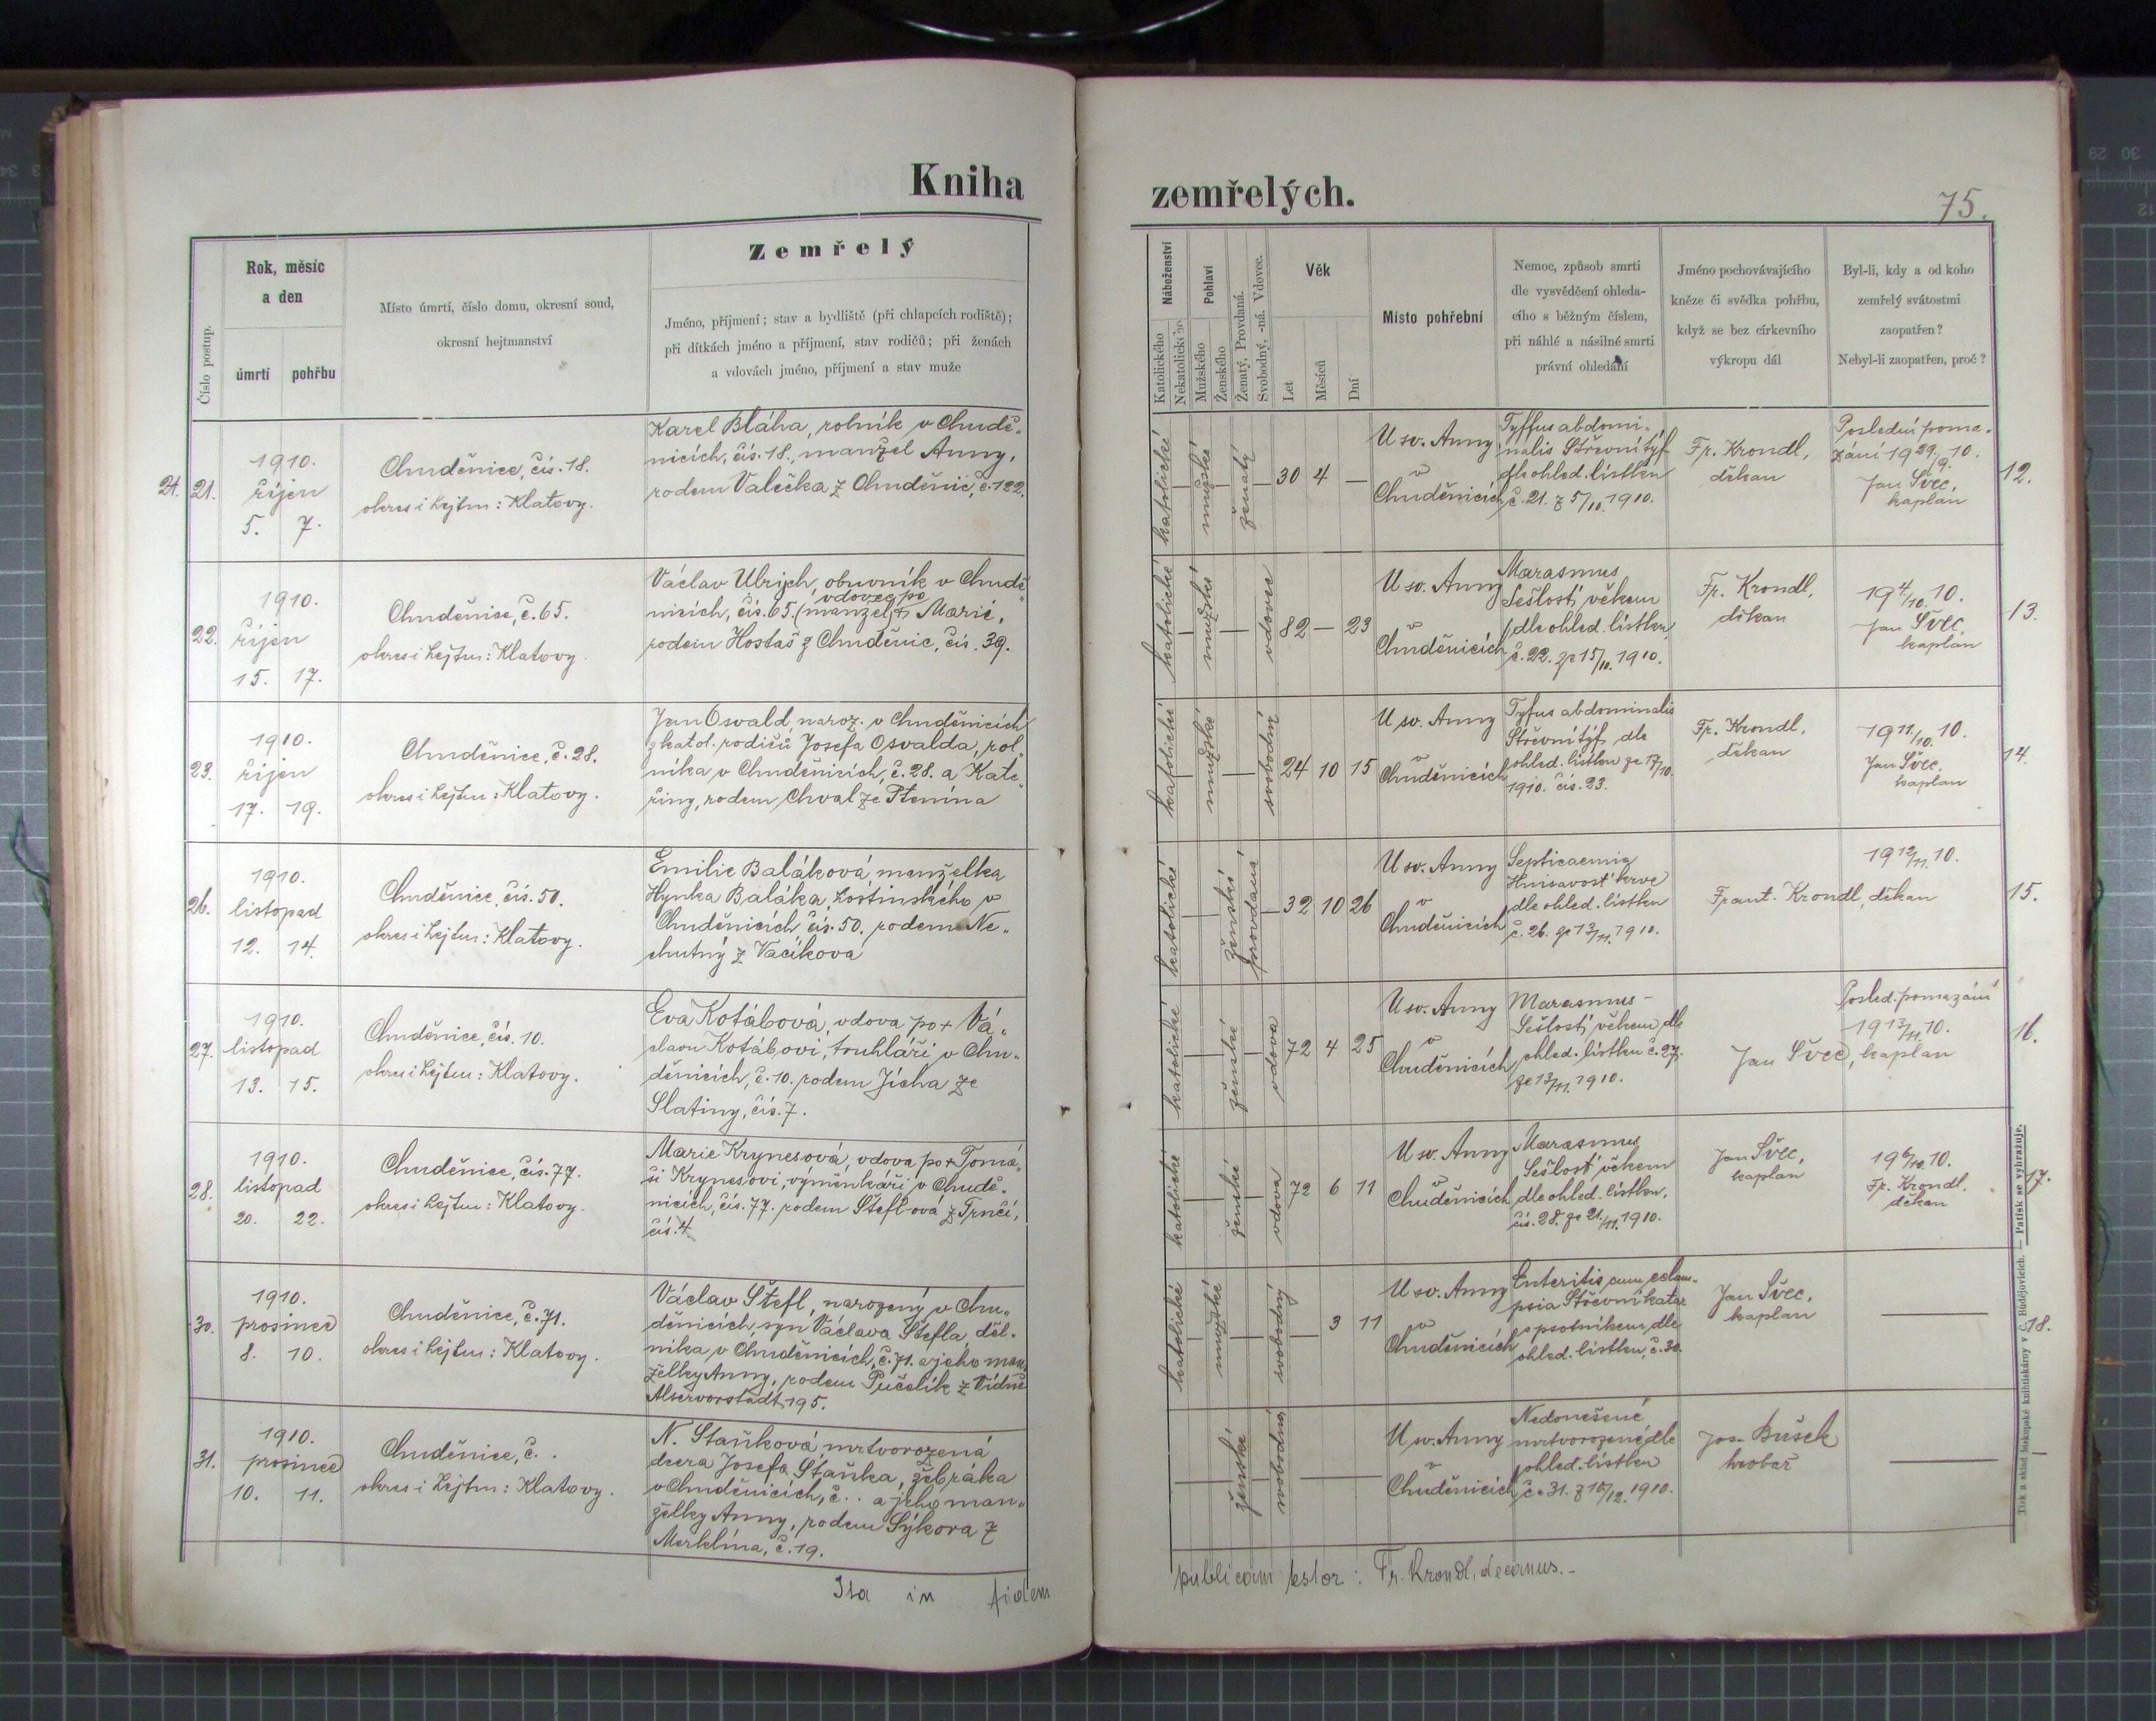 Kniha
zemřelých.
75.
Zemřelý
Číslo postup.
Rok, měsíc
a den
úmrtí
pohřbu
Místo úmrtí, číslo domu, okresní soud,
okresní hejtmanství
Jméno, příjmení; stav a bydliště (při chlapcích rodiště);
při dítkách jméno a příjmení, stav rodičů; při ženách
a vdovách jméno, příjmení a stav muže
Náboženství
Katolického
Nekatolického
Pohlaví
Mužského
Ženského
Ženatý, Provdaná.
Svobodný, -ná. Vdovec.
Věk
Let
Měsíců
Dní
Místo pohřební
Nemoc, způsob smrti
dle vysvědčení ohleda-
cího s běžným číslem,
při náhlé a násilné smrti
právní ohledání
Jméno pochovávajícího
kněze či svědka pohřbu,
když se bez církevního
výkropu dál
Byl-li, kdy a od koho
zemřelý svátostmi
zaopatřen?
Nebyl-li zaopatřen, proč?
21.
21.
1910.
říjen
5. 7.
Chuděnice, čís. 18.
okres i hejtm: Klatovy.
Karel Bláha, rolník v Chudě„
nicích, čís. 18., manžel Anny,
rodem Valečka z Chuděnic, č. 122.
katolické
mužské
ženatý
30 4 —
U sv. Anny
v
Chuděnicích
Tyffus abdomi„
nalis Střevní týf
dle ohled. lístku
č. 21. z 5/10. 1910.
Fr. Krondl,
děkan
Poslední poma„
zání 19 29/9. 10.
Jan Švec,
kaplan
12.
22.
1910.
říjen
15. 17.
Chuděnice, č. 65.
okres i hejtm: Klatovy.
Václav Ulrych, obuvník v Chudě„
vdovec po
nicích, čís. 65. (manžel) + Marii,
rodem Hostaš z Chuděnic, čís. 39.
katolické
mužské
vdovec
82 — 23
U sv. Anny
v
Chuděnicích
Marasmus
Sešlost věkem
dle ohled. lístku
č. 22. ze 15/10. 1910.
Fr. Krondl,
děkan
19 4/10. 10.
Jan Švec,
kaplan
13.
23.
1910.
říjen
17. 19.
Chuděnice, č. 28.
okres i hejtm: Klatovy.
Jan Osvald, naroz. v Chuděnicích
z katol. rodičů Josefa Osvalda, rol„
níka v Chuděnicích, č. 28. a Kate„
řiny, rodem Chval ze Ptenína
katolické
mužské
svobodný
24 10 15
U sv. Anny
v
Chuděnicích
Tyfus abdominalis
Střevní týf dle
ohled. lístku ze 17/10.
1910. čís. 23.
Fr. Krondl,
děkan
19 11/10. 10.
Jan Švec,
kaplan
14.
26.
1910.
listopad
12. 14.
Chuděnice, čís. 50.
okres i hejtm: Klatovy.
Emilie Baláková, manželka
Hynka Baláka, hostinského v
Chuděnicích, čís. 50. rodem Ne„
chutný z Vacíkova
katolické
ženské
provdaná
32 10 26
U sv. Anny
v
Chuděnicích
Septicaemia
Hnisavost krve
dle ohled. lístku
č. 26. ze 13/11. 1910.
Frant. Krondl, děkan
19 12/11. 10.
15.
27.
1910.
listopad
13. 15.
Chuděnice, čís. 10.
okres i hejtm: Klatovy.
Eva Kotábová, vdova po + Vá„
clavu Kotábovi, truhláři v Chu„
děnicích, č. 10. rodem Jícha ze
Slatiny, čís. 7.
katolické
ženské
vdova
72 4 25
U sv. Anny
v
Chuděnicích
Marasmus –
Sešlost věkem dle
ohled. lístku č. 27.
ze 13/11. 1910.
Posled. pomazání
19 13/11. 10.
Jan Švec, kaplan
16.
28.
1910.
listopad
20. 22.
Chuděnice, čís. 77.
okres i hejtm: Klatovy.
Marie Krynesová, vdova po + Tomá„
ši Krynesovi, výměnkáři v Chudě„
nicích, čís. 77. rodem Štefl-ova z Trnčí,
čís. 4.
katolické
ženské
vdova
72 6 11
U sv. Anny
v
Chuděnicích
Marasmus
Sešlost věkem
dle ohled. lístku,
čís. 28. ze 21./11. 1910.
Jan Švec,
kaplan
19 6/10. 10.
Fr. Krondl,
děkan
17.
30.
1910.
prosinec
8. 10.
Chuděnice, č. 71.
okres i hejtm: Klatovy.
Václav Štefl, narozený v Chu„
děnicích, syn Václava Štefla, děl„
níka v Chuděnicích, č. 71. a jeho man„
želky Anny, rodem Pučelík z Vídně
Alservorstadt 195.
katolické
mužské
svobodný
— 3 11
U sv. Anny
v
Chuděnicích
Enteritis cum eclam„
psia Střevní katar
s psotníkem dle
ohled. lístku, č. 30.
Jan Švec,
kaplan
18.
31.
1910.
prosinec
10. 11.
Chuděnice, č. .
okres i hejtm: Klatovy.
N. Staňková mrtvorozená
dcera Josefa Staňka, žebráka
v Chuděnicích, č. . a jeho man„
želky Anny, rodem Sýkora z
Merklína, č. 19.
ženské
svobodná
U sv. Anny
v
Chuděnicích
Nedonešené
mrtvorozené dle
ohled. lístku
č. 31. z 10/12. 1910.
Jos. Bušek
hrobař
Ita in fidem
publicam testor: Fr. Krondl, decanus.–
Tisk a sklad biskupské knihtiskárny v Č. Budějovicích. — Patisk se vyhražuje.